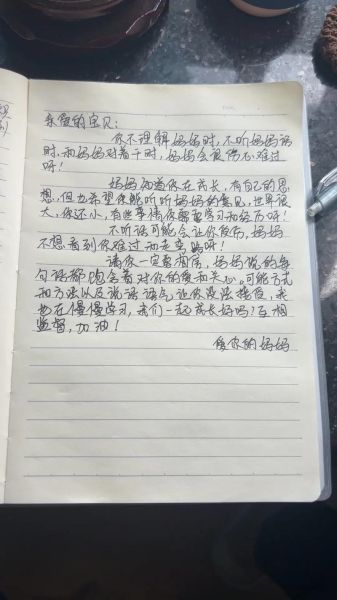 亲爱的宝贝：
你不理解妈妈时，不听妈妈话
时，和妈妈对着干时，妈妈会很伤心难过
呀！
妈妈知道你在成长，有自己的思
想，但也希望你能听听妈妈的意见，世界很
大，你还小，有些事情你需要学习和经历呀！
不听话可能会让你受伤，妈妈
不想看到你难过和走弯路呀！
请你一定要相信，妈妈说的每
句话都饱含着对你的爱和关心，可能方式
和方法以及说话语气让你没法接受，我
也在慢慢学习，我们一起成长好吗？互相
监督，加油！
爱你的妈妈